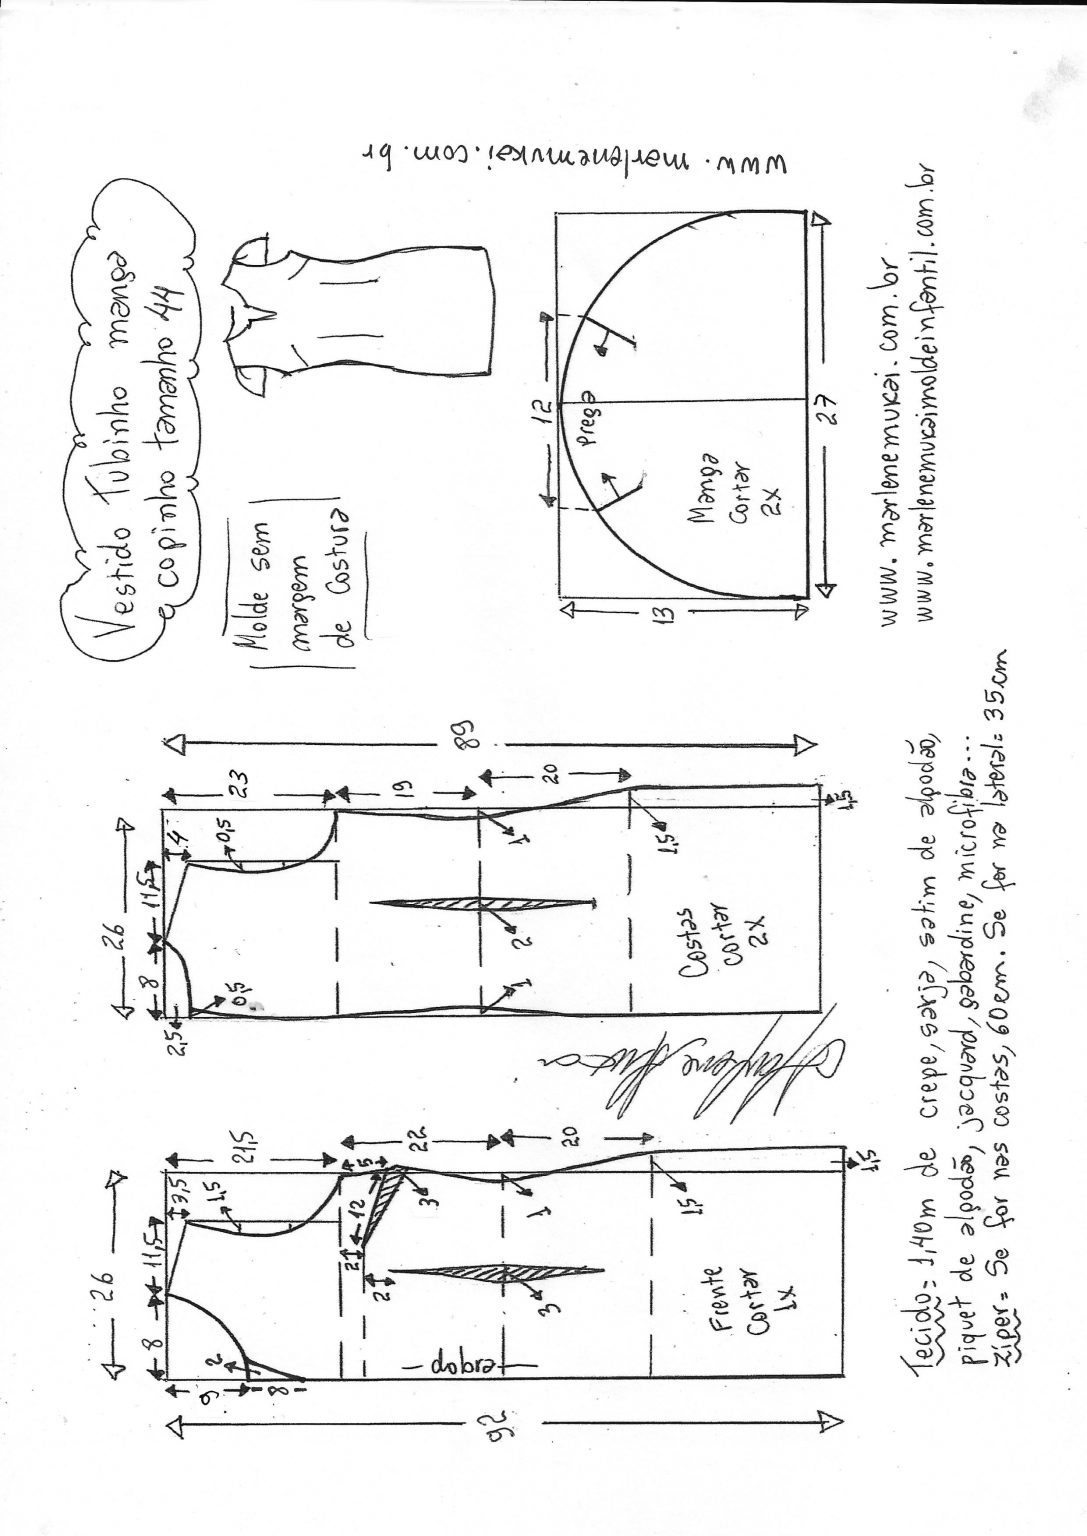 Vestido Tubinho manga
copinho tamanho 44
Molde sem
margem
de Costura
www.marlenemukai.com.br
12
Prega
Manga
Cortar
2x
13
27
www.marlenemukai.com.br
www.marlenemukaimoldeinfantil.com.br
89
23
19
20
26
8
11,5
4
0,5
2,5
0,5
1
2
1
1,5
1,5
Costas
Cortar
2x
21,5
22
20
26
8
11,5
3,5
1,5
5
12
3
2
2
1
3
1,5
1,5
9
2
8
dobra
Frente
Cortar
1x
92
Tecido= 1,40m de crepe, sarja, satim de algodão,
piquet de algodão, jacquard, gabardine, microfibra...
Ziper= Se for nas costas, 60cm. Se for na lateral= 35cm